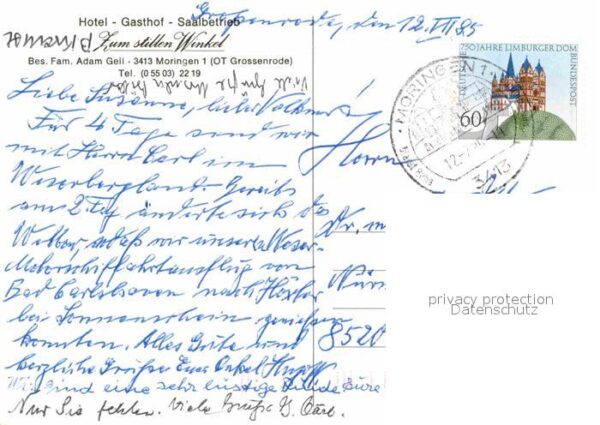 Großenrode, den 12. VII 85
Hotel - Gasthof - Saalbetrieb
Zum stillen Winkel
Bes. Fam. Adam Geil - 3413 Moringen 1 (OT Grossenrode)
Tel. (0 55 03) 22 19
Viele Grüße
Liebe Susanne, lieber Volkmar!
Für 4 Tage sind wir
mit Herrn Carl im
Weserbergland. Bereits
am 2. Tag änderte sich das
so daß wir unsere Weser-
Motorschiffahrtausflug von
Bad Carlshaven nach Höxter
bei Sonnenschein genießen
konnten. Alles Gute und
herzliche Grüße Euer Onkel
Wir sind eine sehr lustige Runde Eure
Nur Sie fehlen. Viele Grüße G. Carl.
750 JAHRE LIMBURGER DOM
DEUTSCHE BUNDESPOST
60
MORINGEN 1
3413
Herrn
Dr.
8520
privacy protection
Datenschutz